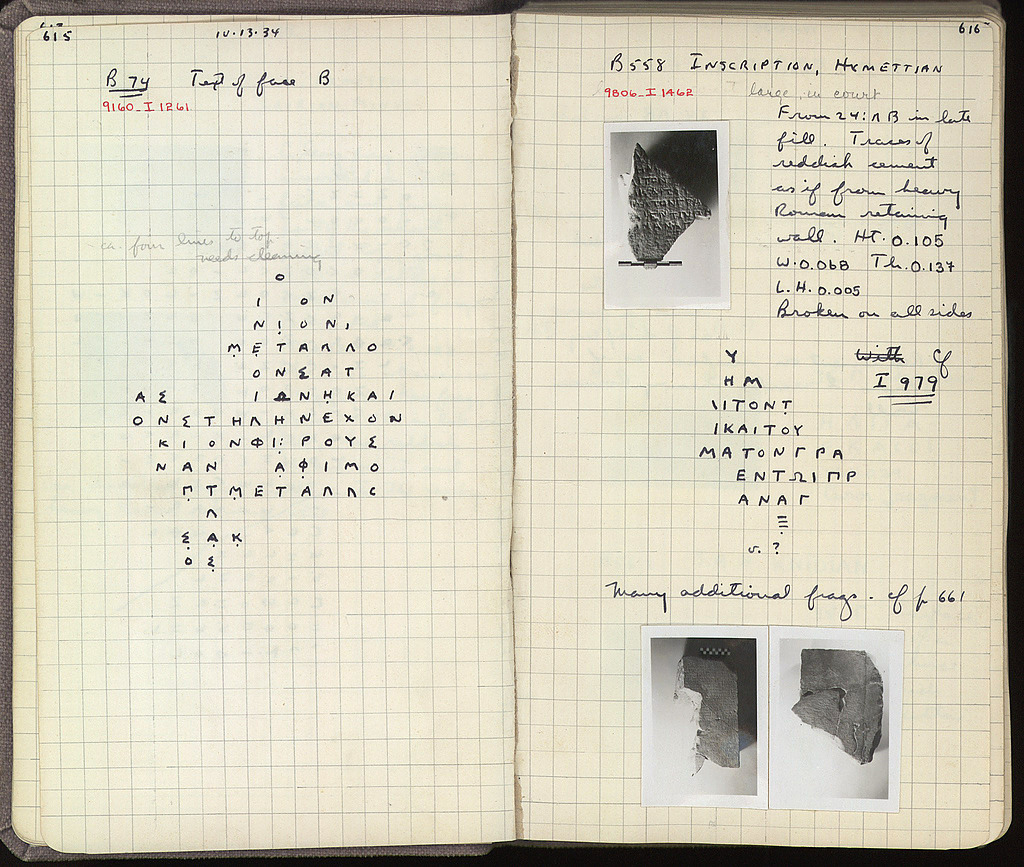 615
IV·13·34
B 74 Text of face B
9160_I 1261
ca. four lines to top
needs cleaning
Ο
Ι Ο Ν
Ν Ι Ο Ν ,
Μ Ε Τ Α Λ Λ Ο
Ο Ν Σ Α Τ
Α Σ Ι Ω Ν Η Κ Α Ι
Ο Ν Σ Τ Η Λ Η Ν Ε Χ Ο Ν
Κ Ι Ο Ν Φ Ι : Ρ Ο Υ Σ
Ν Α Ν Α Φ Ι Μ Ο
Γ Τ Μ Ε Τ Α Λ Λ Ο
Λ
Σ Α Κ
Ο Σ
616
B 558 INSCRIPTION, HYMETTIAN
9806_I 1462
large, in court
From 24:ΛB in late
fill. Traces of
reddish cement
as if from heavy
Roman retaining
wall. HT. 0.105
W. 0.068 Th. 0.137
L.H. 0.005
Broken on all sides
with cf
I 979
Υ
Η Μ
Λ Ι Τ Ο Ν Τ
Ι Κ Α Ι Τ Ο Υ
Μ Α Τ Ο Ν Γ Ρ Α
Ε Ν Τ Ω Ι Π Ρ
Α Ν Α Γ
Ξ
v. ?
Many additional frags. cf p 661